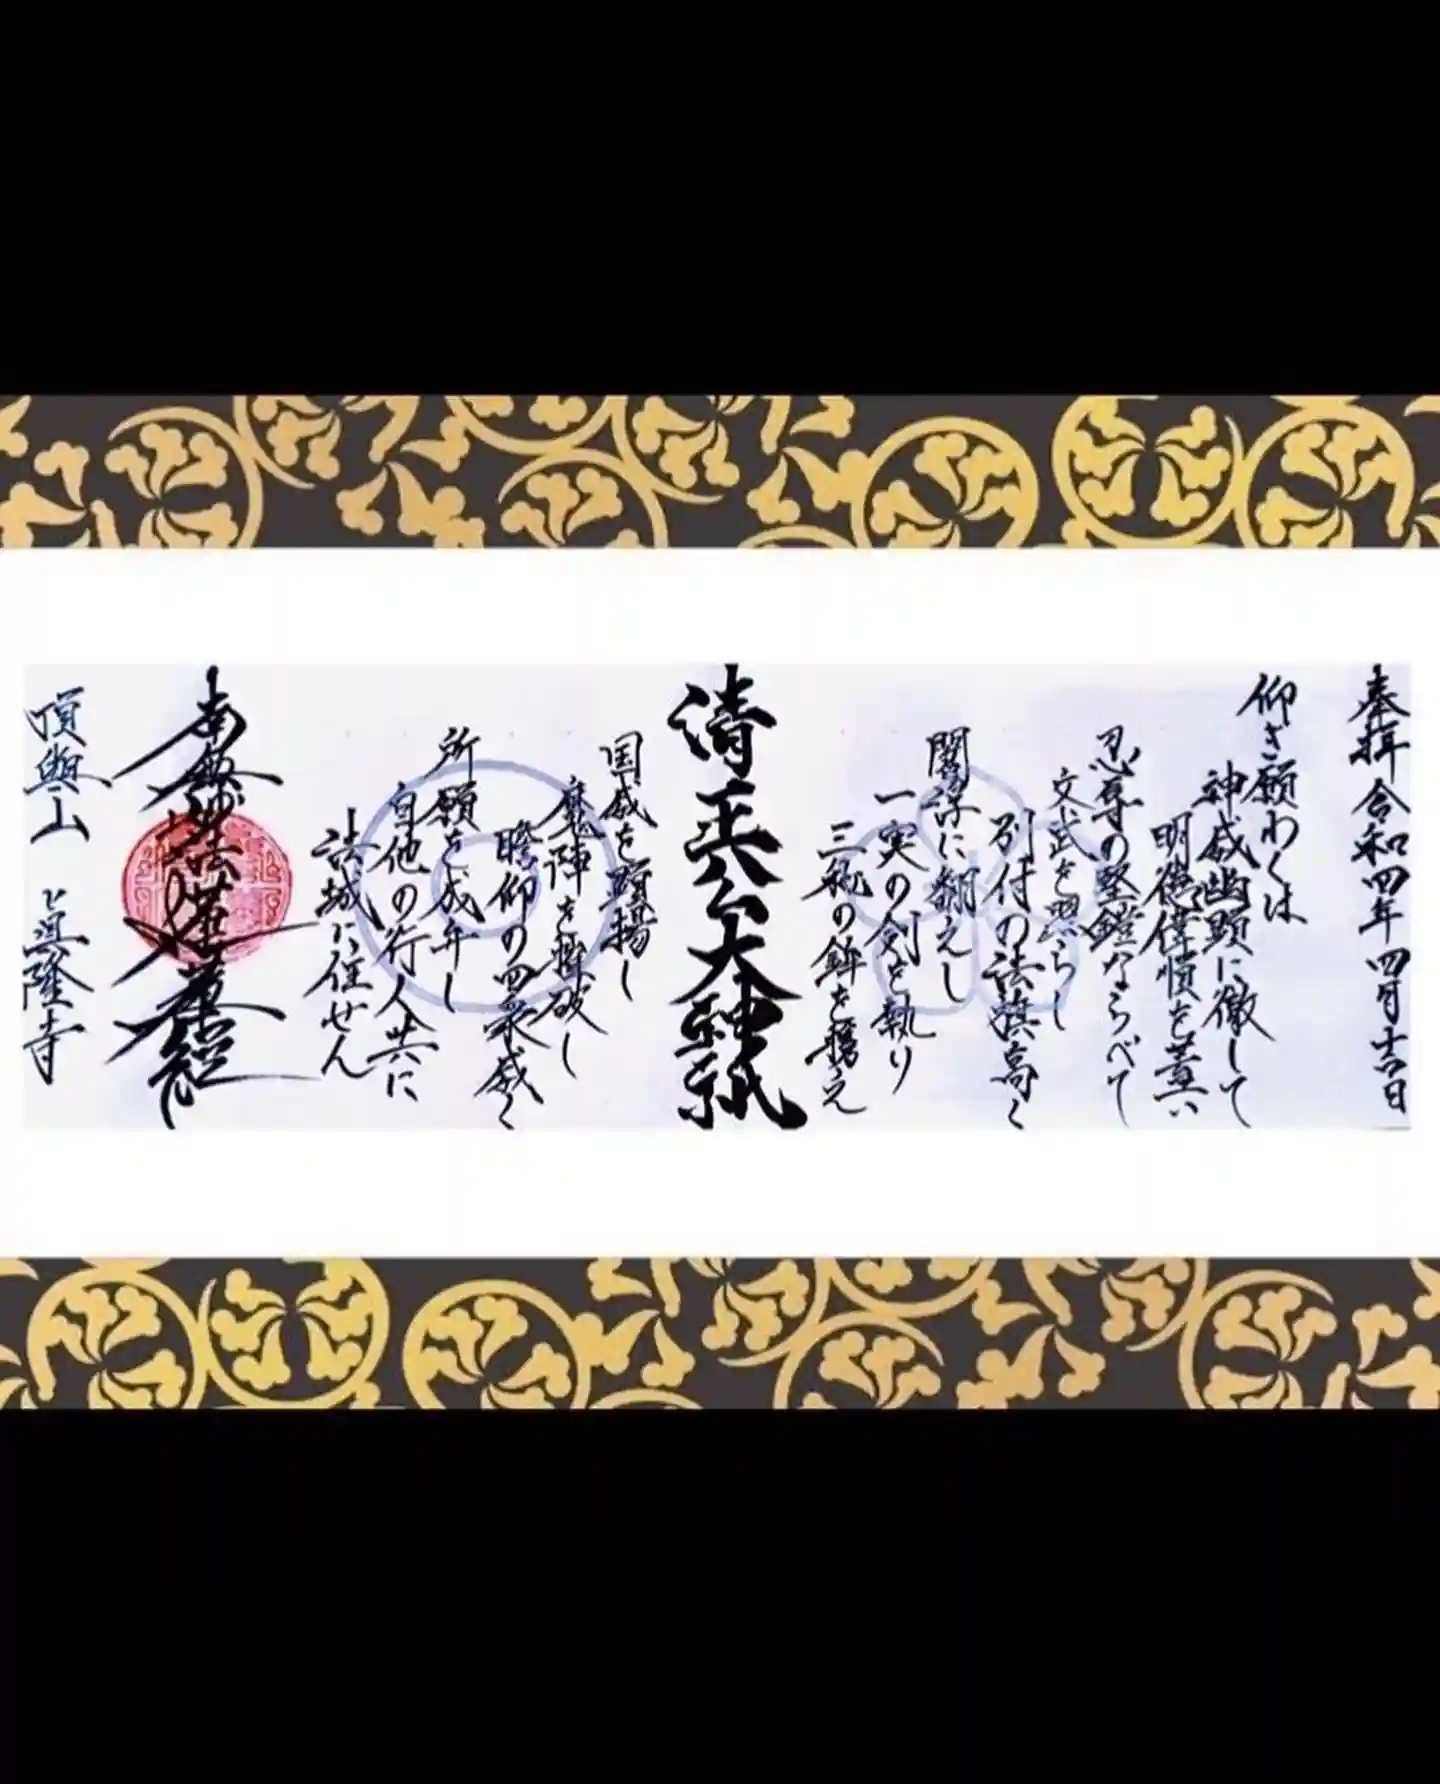 奉拝 令和四年四月吉日
仰ぎ願わくは
神威幽顕に徹して
明徳偉憤を蓋い
忍辱の堅鎧ならべて
文武を照らし
別付の法旗高く
閻浮に翻えし
一実の剣を執り
三軌の鉾を携え
清正公大神祇
国威を顕揚し
魔陣を摧破し
瞻仰の四衆威く
所願を成弁し
自他の行人共に
法城に住せん
南無妙法蓮華経
頂興山 眞隆寺